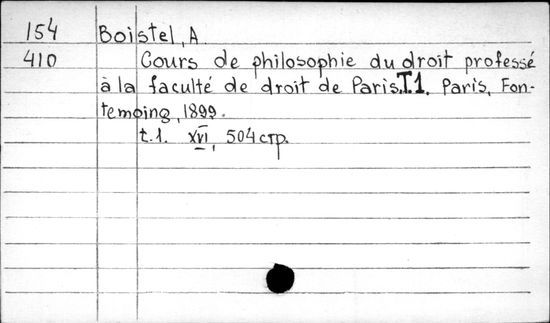 154 Boistel, A.
410 Cours de philosophie du droit professé
à la faculté de droit de Paris. T.1. Paris, Fon-
temoing, 1899.
t.1. XVI, 504 стр.